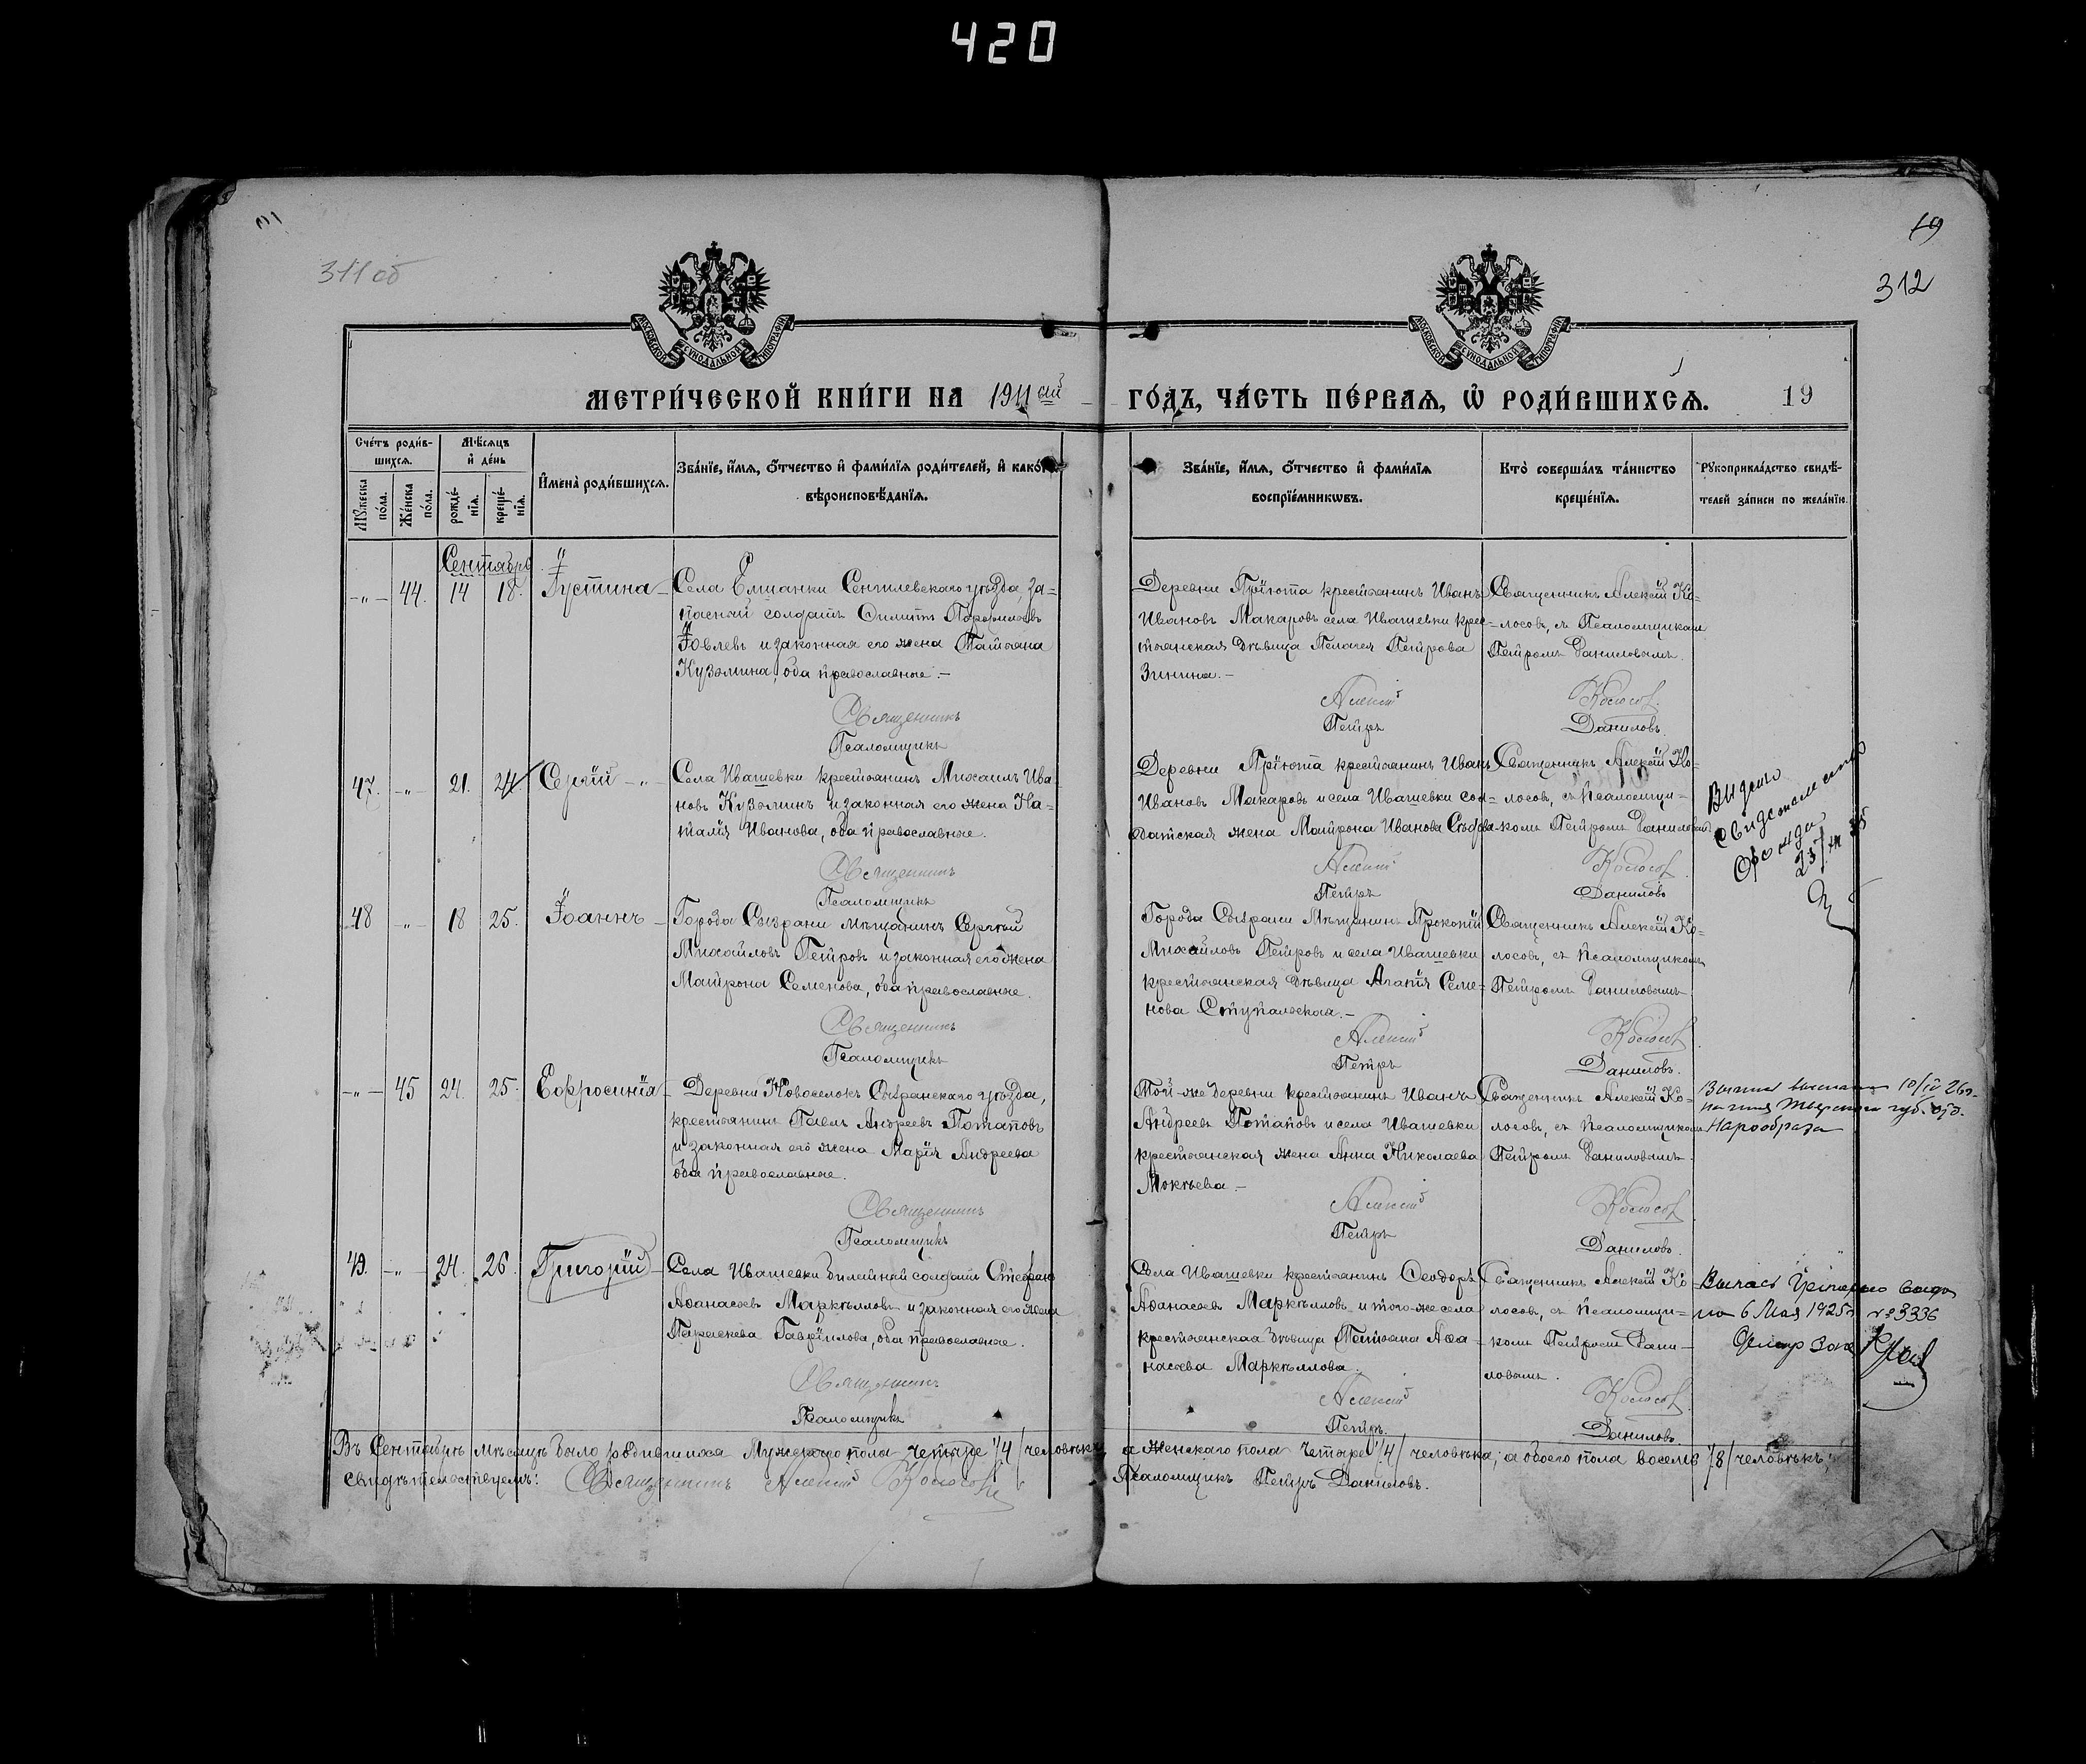 420
19
311 об
312
МОСКОВСКОЙ СѴНОДАЛЬНОЙ ТИПОГРАФІИ
МОСКОВСКОЙ СѴНОДАЛЬНОЙ ТИПОГРАФІИ
МЕТРИ́ЧЕСКОЙ КНИ́ГИ НА 1911 ый
ГО́ДЪ, ЧА́СТЬ ПЕ́РВАЯ, Ѡ҆ РОДИ́ВШИХСЯ. 19
Сче́тъ роди́в-
шихся.
Мꙋ́жеска по́ла.
Же́нска по́ла.
Мѣ́сяцъ
и҆ де́нь
рожде́-
нїя.
креще́-
нїя.
И҆мена̀ роди́вшихся.
Зва́нїе, и҆́мя, ѻ҆́тчество и҆ фами́лїя роди́телей, и҆ како́гѡ
вѣроисповѣ́данїя.
Зва́нїе, и҆́мя, ѻ҆́тчество и҆ фами́лїя
воспрїе́мникѡвъ.
Кто̀ соверша́лъ та́инство
креще́нїя.
Рꙋкоприкла́дство свидѣ́-
телей за́писи по жела́нїю.
Сентябрь
-"- 44. 14 18. Іустина
Села Елшанки Сенгилевскаго уѣзда, за-
пасный солдатъ Филиппъ
Іовлевъ и законная его жена Татіана
Кузьмина, оба православные.-
Священникъ
Псаломщикъ
Деревни Пріюта крестьянинъ Иванъ
Ивановъ Макаровъ села Ивашевки крес-
тьянская дѣвица Пелагея Петрова
Зинина.-
Алексій
Петръ
Священникъ Алексій Ко-
лосовъ, съ Псаломщикомъ
Петромъ Даниловымъ.
Колосов.
Даниловъ.
47. -"- 21. 24 Сергій -"-
Села Ивашевки крестьянинъ Михаилъ Ива-
новъ Кузьминъ и законная его жена На-
талія Иванова, оба православные.
Священникъ
Псаломщикъ
Деревни Пріюта крестьянинъ Иванъ
Ивановъ Макаровъ и села Ивашевки сол-
датская жена Матрона Иванова
Алексій
Петръ
Священникъ Алексій Ко-
лосовъ, съ Псаломщи-
комъ Петромъ Даниловымъ
Колосов.
Даниловъ
48 -"- 18 25. Іоаннъ
Города Сызрани мѣщанинъ Сергѣй
Михайловъ Петровъ и законная его жена
Матрона Семенова, оба православные.
Священникъ
Псаломщикъ
Города Сызрани Мѣщанинъ Прокопій
Михайловъ Петровъ и села Ивашевки
крестьянская дѣвица Агапія Семе-
нова Ступальская.-
Алексій
Петръ
Священникъ Алексій Ко-
лосовъ, съ Псаломщикомъ
Петромъ Даниловымъ
Колосов.
Даниловъ.
-"- 45 24. 25. Евфросинія
Деревни Новоселокъ Сызранскаго уѣзда,
крестьянинъ Павелъ Андреевъ Потаповъ
и законная его жена Марія Андреева
оба православные.
Священникъ
Псаломщикъ
Той-же деревни крестьянинъ Иванъ
Андреевъ Потаповъ и села Ивашевки
крестьянская жена Анна Николаева
Мокѣева.-
Алексій
Петръ
Священникъ Алексій Ко-
лосовъ, съ Псаломщикомъ
Петромъ Даниловымъ.
Колосов.
Даниловъ.
10/IV 26г.
49. -"- 24. 26. Григорій
Села Ивашевки билетный солдатъ Стефанъ
Аѳанасьевъ Маркѣловъ и законная его жена
Параскева Гавріилова, оба православные.
Священникъ
Псаломщикъ
Села Ивашевки крестьянинъ Ѳеодоръ
Аѳанасьевъ Маркѣловъ и того-же села
крестьянская дѣвица Татіана Аѳа-
насьева Маркѣлова.
Алексій
Петръ.
Священникъ Алексій Ко-
лосовъ, съ Псаломщи-
комъ Петромъ Дани-
ловымъ.
Колосов.
Даниловъ.
6 Мая 1925г №3336
Въ Сентябрѣ мѣсяцѣ было родившихся Мужескаго пола четыре /4/ человѣка, а женскаго пола четыре /4/ человѣка, а обоего пола восемь /8/ человѣкъ;
свидѣтельствуемъ: Священникъ Алексій Колосовъ
Псаломщикъ Петръ Даниловъ.